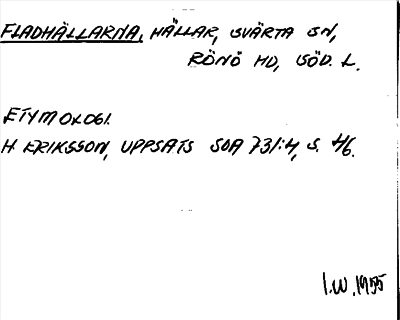 FLADHÄLLARNA, HÄLLAR, SVÄRTA SN,
RÖNÖ HD, SÖD. L.
ETYMOLOGI.
H ERIKSSON, UPPSATS SOA 731:4, S. 46.
I.W. 1955